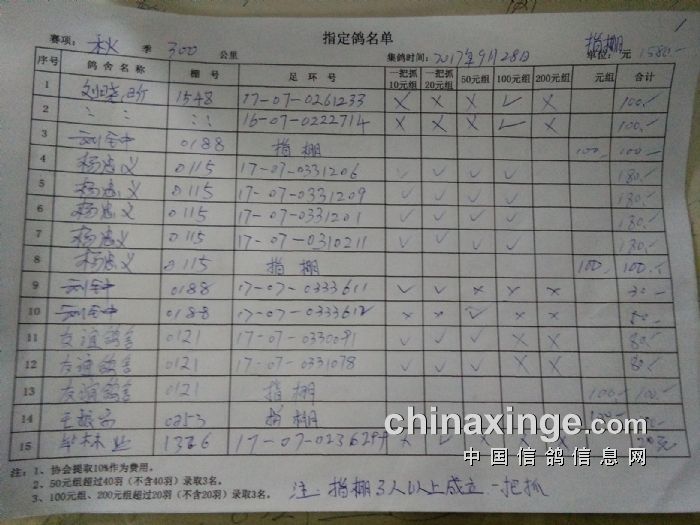 指定鸽名单
1
赛项: 秋 季 300 公里 集鸽时间: 2017年9月28日 指棚 单位: 元 1580-
序号 鸽舍名称 棚号 足环号 一把抓10元组 一把抓20元组 50元组 100元组 200元组 元组 合计
1 刘晓 1548 17-07-0261233 × × × ✓ × 100.-
2 〃 〃 〃 16-07-0222714 × × × ✓ × 100.-
3 刘金中 0188 指棚 100. 100.-
4 杨忠义 0115 17-07-0331206 ✓ ✓ ✓ ✓ 180.-
5 杨忠义 0115 17-07-0331209 ✓ ✓ ✓ ✓ 180.-
6 杨忠义 0115 17-07-0331201 ✓ ✓ ✓ ✓ 180.-
7 杨忠义 0115 17-07-0310211 ✓ ✓ ✓ ✓ 180.-
8 杨忠义 0115 指棚 100. 100.-
9 刘金中 0188 17-07-0333611 ✓ ✓ × × × 30-
10 刘金中 0188 17-07-0333612 × × ✓ × × 50.-
11 友谊鸽舍 0121 17-07-0330091 ✓ ✓ ✓ × × 80.-
12 友谊鸽舍 0121 17-07-0331078 ✓ ✓ ✓ × × 80.-
13 友谊鸽舍 0121 指棚 100.- 100.-
14 王振 0253 指棚 100-
15 毕林业 1326 17-07-0236294 × ✓ × × × 20元
注: 1、协会提取10%作为费用。
2、50元组超过40羽(不含40羽)录取3名。
3、100元组、200元组超过20羽(不含20羽)录取3名。
注 指棚3人以上成立 一把抓
chinaxinge.com
中国信鸽信息网